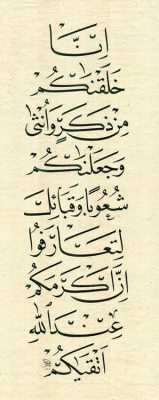 اِنَّا
خَلَقْنَاكُمْ
مِنْ ذَكَرٍ وَاُنْثٰى
وَجَعَلْنَاكُمْ
شُعُوبًا وَقَبَائِلَ
لِتَعَارَفُوا
اِنَّ اَكْرَمَكُمْ
عِنْدَ اللّٰهِ
اَتْقٰيكُمْ